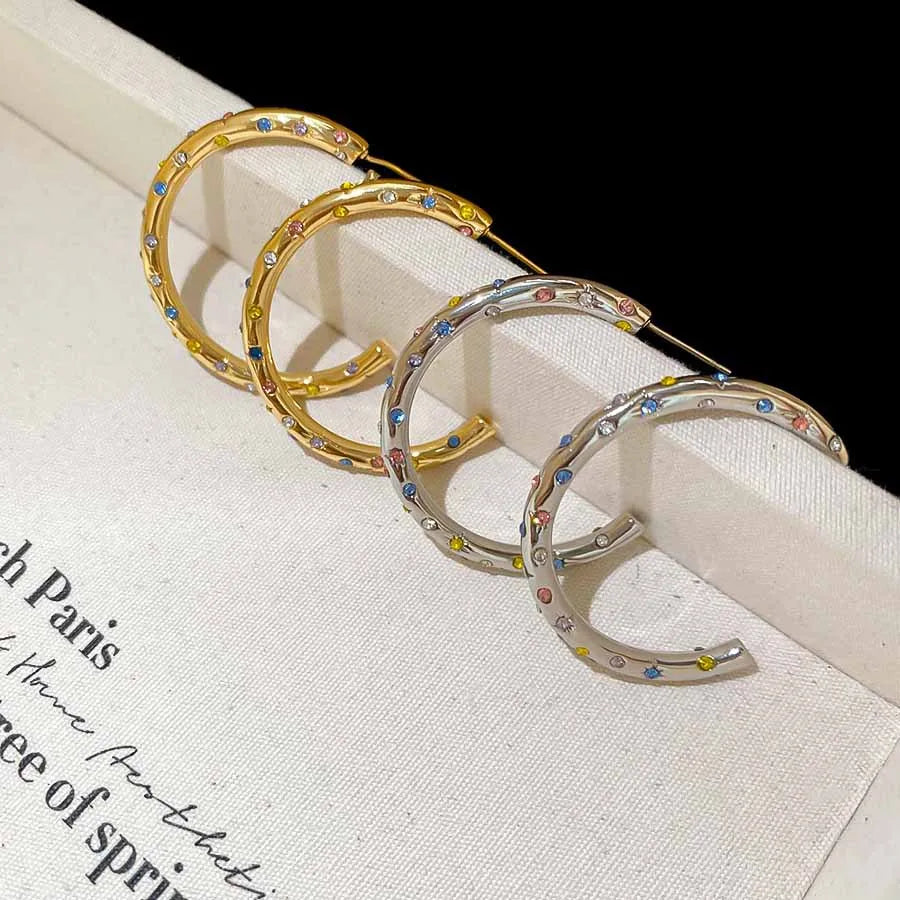 ch Paris
Home Aestheti
ree of sprin